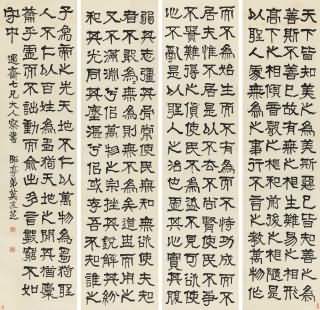 天下皆知美之為美斯惡已皆知
善斯不善已故有無之相生難易之相成長短之相形
高下之相傾音聲之相和前後之相隨是
以聖人處無為之事行不言之教萬物作
而不為始生而不有為而不恃功成不
居夫惟不居是以不去不尚賢使民不
爭不貴難得之貨使民不為盜不見可欲使
心不亂是以聖人之治也虛其心實其腹
弱其志強其骨常使民無知無欲使夫知
者不敢為為無為則無不為矣道沖而用之
又不滿淵兮似萬物之宗挫其銳解其紛
和其光同其塵湛兮似或存吾不知誰之
子象帝之先天地不仁以萬物為芻狗聖
人不仁以百姓為芻狗天地之間其猶橐
籥乎虛而不詘動而俞出多言數窮不如
守中 七兄大人